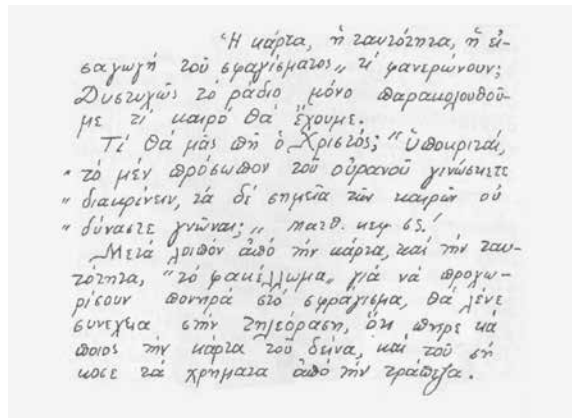 "Ἡ κάρτα, ἡ ταυτότητα, ἡ εἰ-
σαγωγή τοῦ σφαγίσματος,, τί φανερώνουν;
Δυστυχῶς τό ράδιο μόνο παρακολουθοῦ-
με τί καιρό θά ἔχουμε.
Τί θά μᾶς πῆ ὁ Χριστός; "Ὑποκριταί,
" τό μέν πρόσωπον τοῦ οὐρανοῦ γινώσκετε
" διακρίνειν, τά δέ σημεῖα τῶν καιρῶν οὐ
" δύνασθε γνῶναι;,, Ματθ. κεφ. 65.!
Μετά λοιπόν ἀπό τήν κάρτα, καί τήν ταυ-
τότητα, "τό φακέλλωμα,, γιά νά προχω-
ρίσουν πονηρά στό σφράγισμα, θά λένε
συνεχεια στήν τηλεόραση, ὅτι πῆρε κά
ποιος τήν κάρτα τοῦ δείνα, καί τοῦ σή
κωσε τά χρήματα ἀπό τήν τράπεζα.